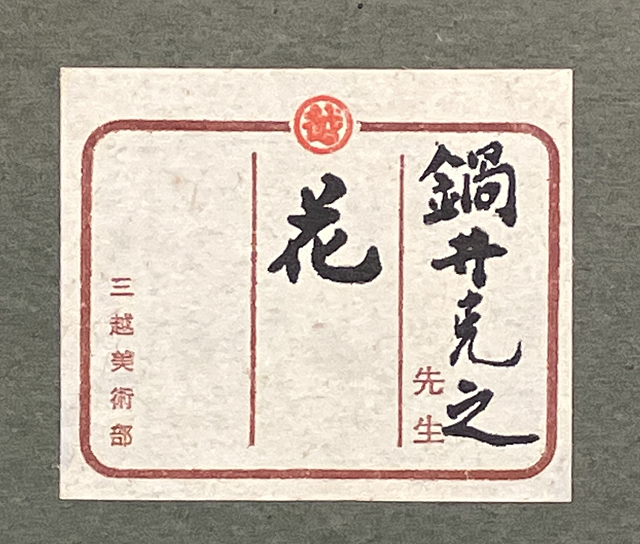 越
鍋井克之
先生
花
三越美術部